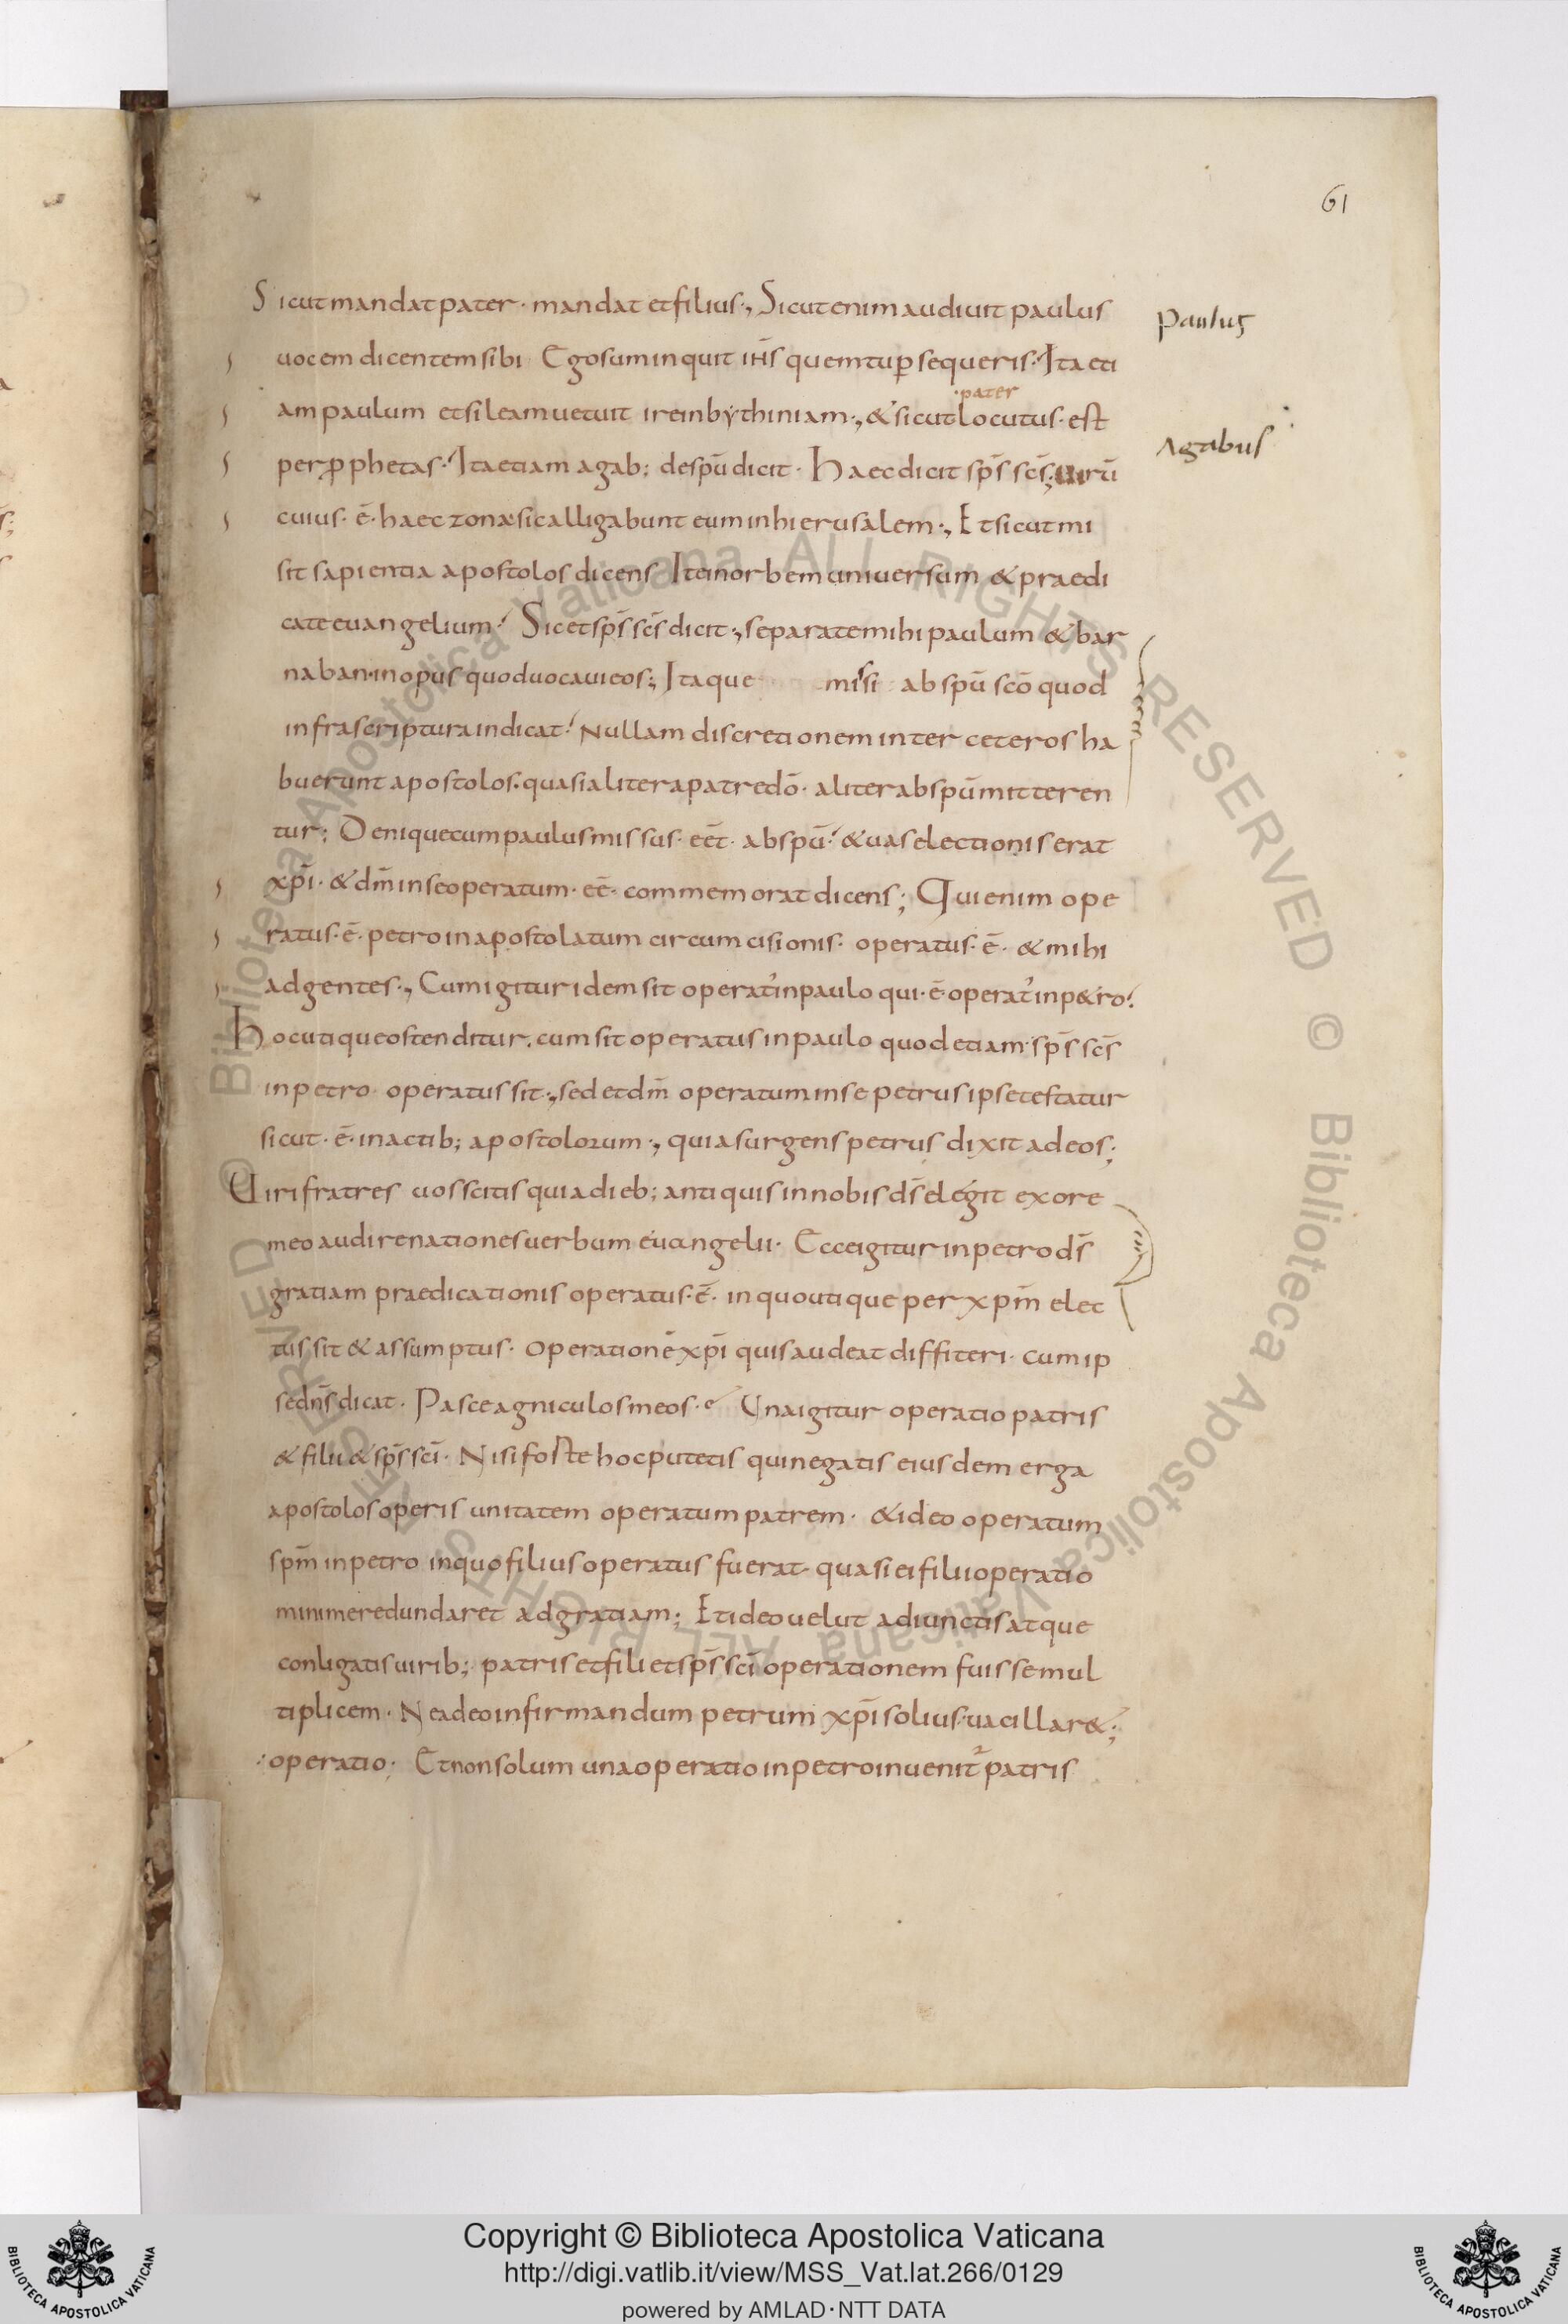 61
Sicut mandat pater · mandat et filius ·, Sicut enim audiuit paulus
uocem dicentem sibi Ego sum inquit ih̄s quem tu ꝑsequeris · Ita eti
am paulum et sileam uetuit ire in bẏthiniam ·, & sicut ·pater locutus · est
per ꝓphetas · Ita etiam agab; de spū dicit · Haec dicit sp̄s sc̄s; uirū
cuius · ē · haec zona · sic alligabunt eum in hierusalem ·, Et sicut mi
sit sapientia apostolos dicens Ite in orbem uniuersum & praedi
cate euangelium · Sic et sp̄s sc̄s dicit ·, separate mihi paulum & bar
naban · in opus quod uocaui eos ; Itaque misi ab spū scō quod
infra scriptura indicat · Nullam discretionem inter ceteros ha
buerunt apostolos · quasi aliter a patre dō · aliter ab spū mitteren
tur ; Denique cum paulus missus · eēt · ab spū · & uas electionis erat
xp̄i · & dm̄ in se operatum · eē · commemorat dicens ; Qui enim ope
ratus · ē · petro in apostolatum circumcisionis · operatus · ē · & mihi
ad gentes ·, Cum igitur idem sit operat' in paulo qui · ē · operat' in p&ro ·
Hoc utique ostenditur · cum sit operatus in paulo quod etiam · sp̄s sc̄s
in petro · operatus sit ·, sed et dm̄ operatum in se petrus ipse testatur
sicut · ē · in actib; apostolorum ·, quia surgens petrus dixit ad eos ;
Uiri fratres uos scitis quia dieb; antiquis in nobis ds̄ elegit ex ore
meo audire nationes uerbum euangelii · Ecce igitur in petro ds̄
gratiam praedicationis operatus · ē · in quo utique per xp̄m elec
tus sit & assumptus · Operationē xp̄i quis audeat diffiteri · cum ip
se dn̄s dicat · Pasce agniculos meos · Una igitur operatio patris
& filii & sp̄s sc̄i · Nisi foste hoc putetis qui negatis eiusdem erga
apostolos operis unitatem operatum patrem · & ideo operatum
sp̄m in petro in quo filius operatus fuerat · quasi ei filii operatio
minime redundaret ad gratiam ; Et ideo uelut adiunctis atque
conligatis uirib; patris et fili et sp̄s sc̄i operationem fuisse mul
tiplicem · Ne adeo infirmandum petrum xp̄i solius · uacillar& ;
operatio ; Et non solum una operatio in petro inuenit² patris
paulus
Agabus
Copyright © Biblioteca Apostolica Vaticana
http://digi.vatlib.it/view/MSS_Vat.lat.266/0129
powered by AMLAD·NTT DATA
BIBLIOTECA APOSTOLICA VATICANA
BIBLIOTECA APOSTOLICA VATICANA
© Biblioteca Apostolica Vaticana ALL RIGHTS RESERVED © Biblioteca Apostolica Vaticana ALL RIGHTS RESERVED